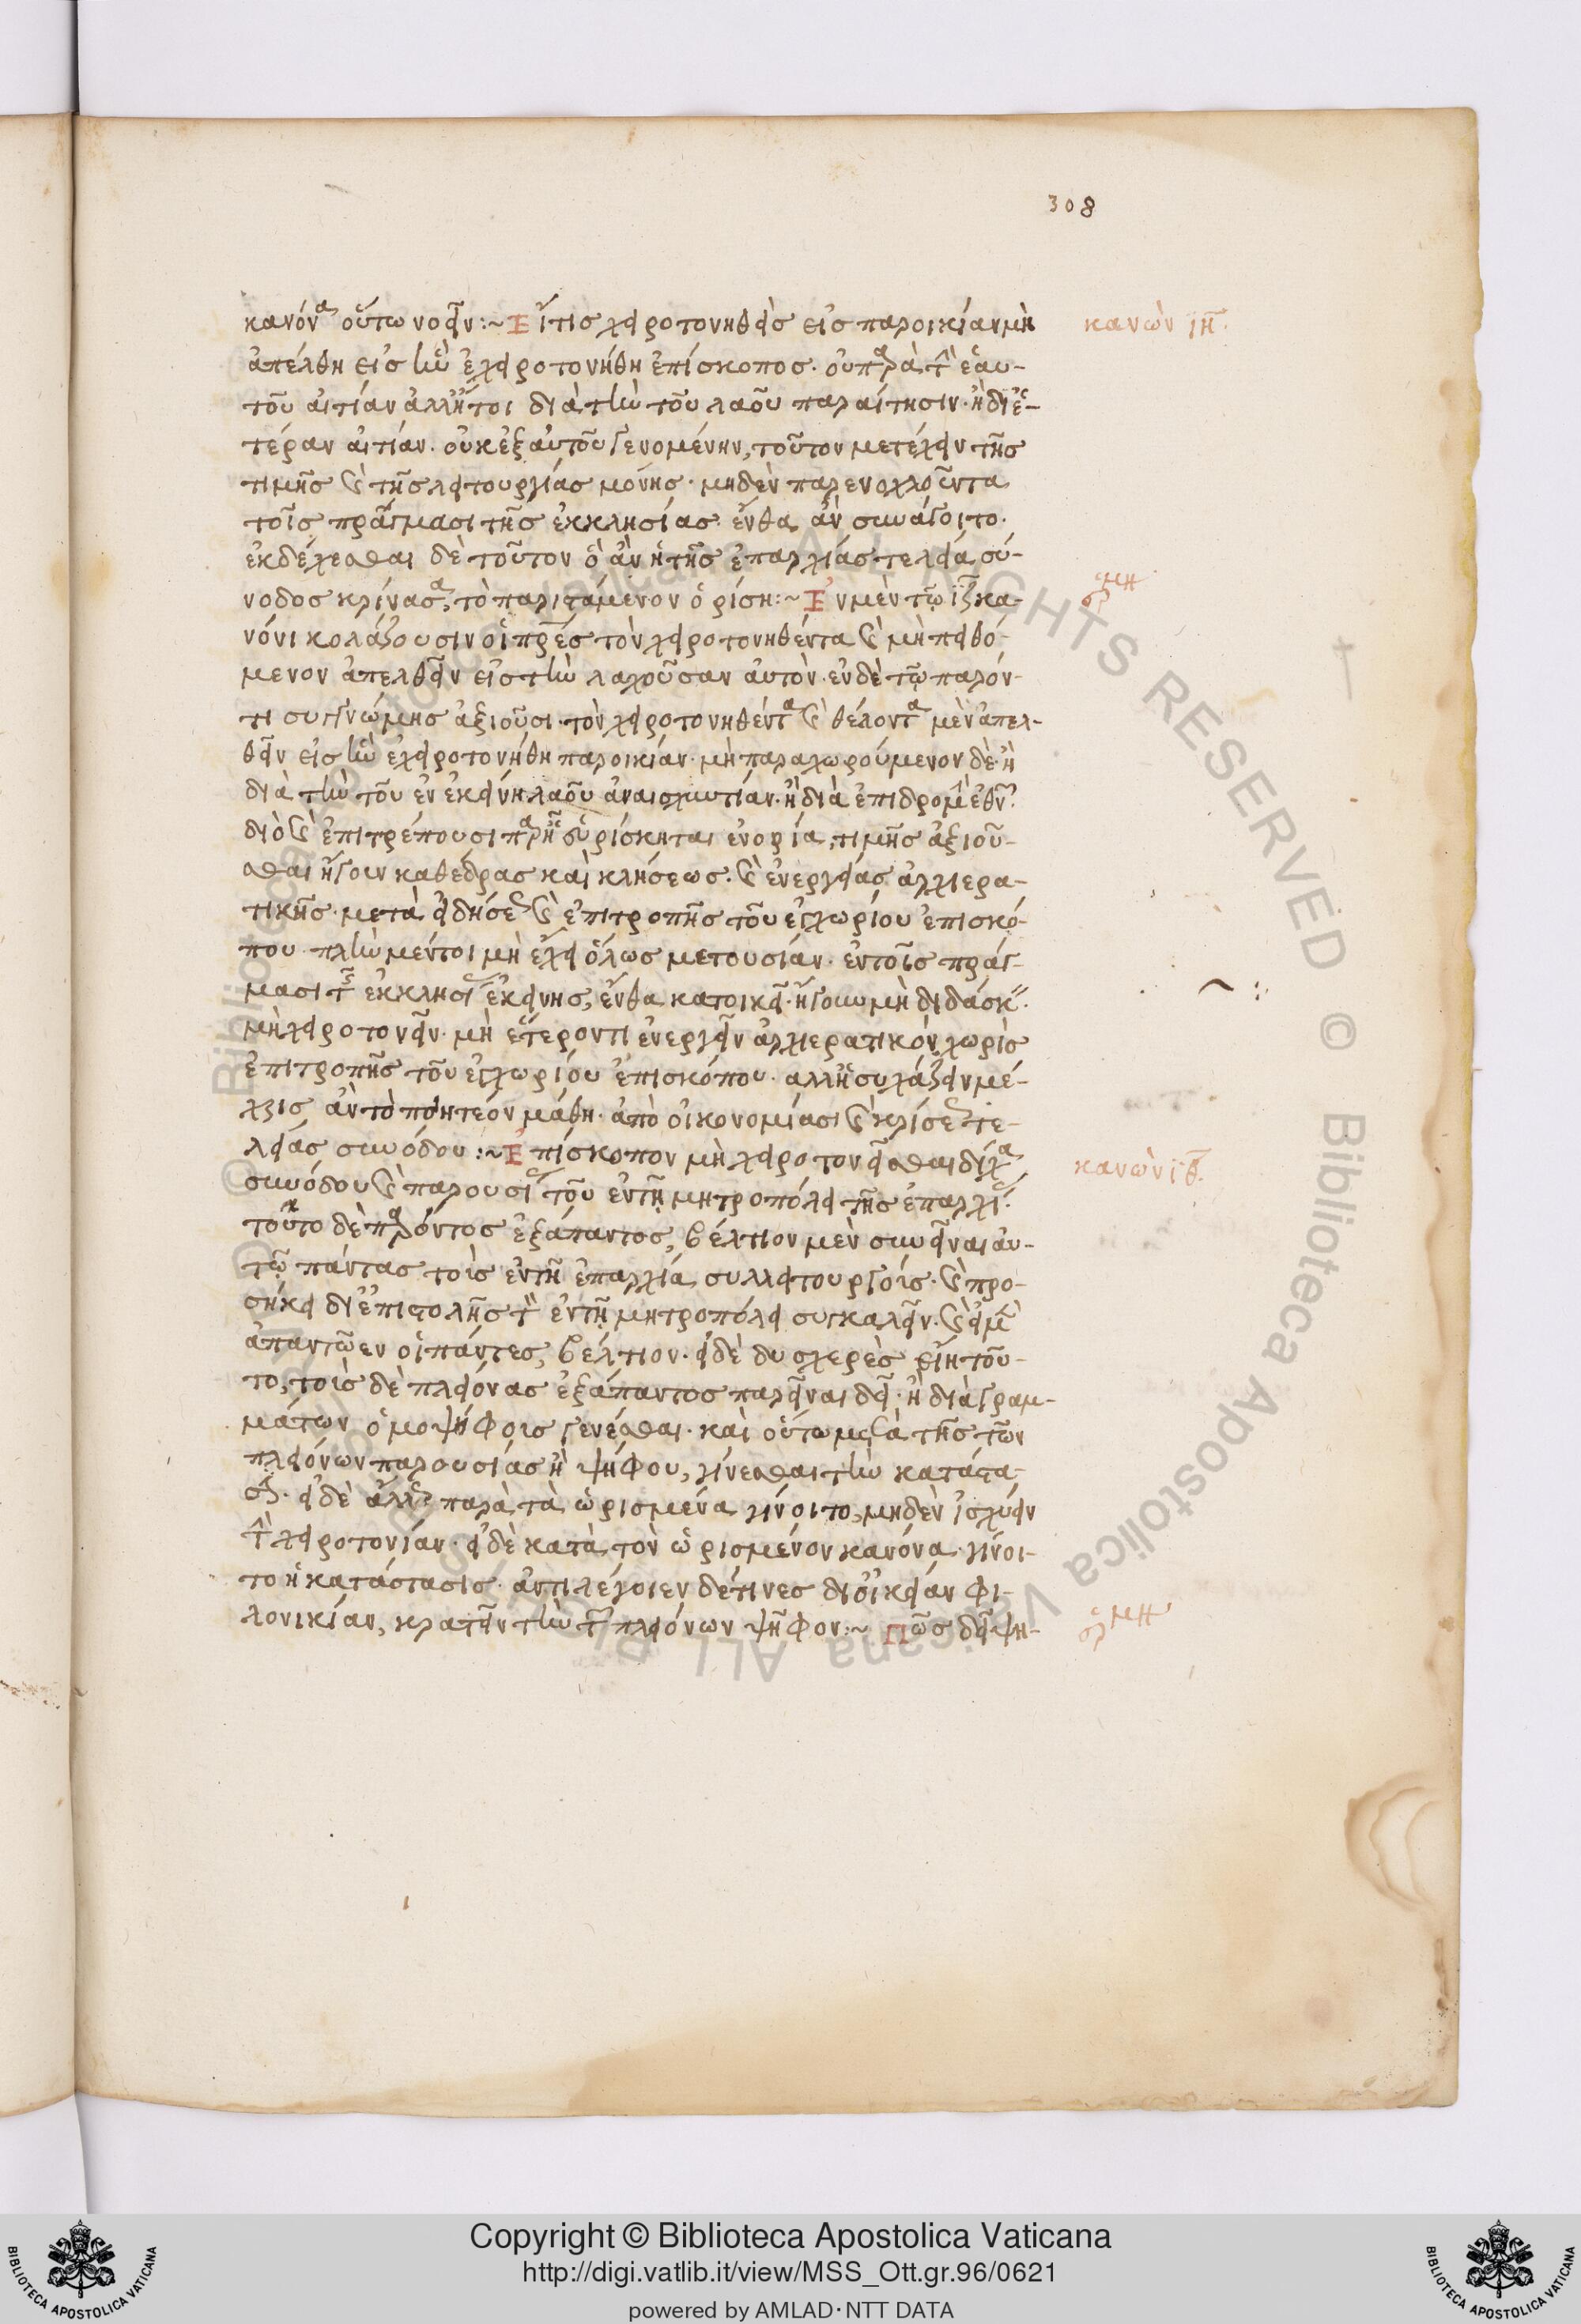 308
κανόνα οὕτω νοεῖν:~ Εἴτις χειροτονηθεὶς εἰς παροικίαν μὴ
κανὼν ιη̅.
ἀπέλθη εἰς ἣν ἐχειροτονήθη ἐπίσκοπος. οὐ παρὰ τὴν ἑαυ-
τοῦ αἰτίαν ἀλλ' ἤτοι διὰ τὴν τοῦ λαοῦ παραίτησιν. ἢ δι' ἑ-
τέραν αἰτίαν. οὐκ ἐξ αὐτοῦ γενομένην, τοῦτον μετέχειν τῆς
τιμῆς καὶ τῆς λειτουργίας μόνης. μηδὲν παρενοχλοῦντα
τοῖς πράγμασι τῆς ἐκκλησίας ἔνθα ἂν συνάγοιτο.
ἐκδέχεσθαι δὲ τοῦτον ὃ ἂν ἡ τῆς ἐπαρχίας τελεία σύ-
νοδος κρίνασα, τὸ παριστάμενον ὁρίση:~ Ἐν μὲν τῶ ιζ κα-
νόνι κολάζουσιν οἱ πρες τὸν χειροτονηθέντα καὶ μὴ πειθό-
μενον ἀπελθεῖν εἰς τὴν λαχοῦσαν αὐτὸν. ἐν δὲ τῶ παρόν-
τι συγγνώμης ἀξιοῦσι. τὸν χειροτονηθέντα καὶ θέλοντα μὲν ἀπελ-
θεῖν εἰς ἣν ἐχειροτονήθη παροικίαν. μὴ παραχωρούμενον δὲ. ἢ
διὰ τὴν τοῦ ἐν ἐκείνη λαοῦ ἀναισχυντίαν. ἢ διὰ ἐπιδρομὴν ἐθν
διὸ καὶ ἐπιτρέπουσι παρ' ἧς εὑρίσκηται ἐνορία, τιμῆς ἀξιοῦ-
σθαι ἤγουν καθέδρας καὶ κλήσεως. καὶ ἐνεργείας ἀρχιερα-
τικῆς. μετὰ εἰδήσεως καὶ ἐπιτροπῆς τοῦ ἐγχωρίου ἐπισκό-
που. πλὴν μέντοι μὴ ἔχει ὅλως μετουσίαν. ἐν τοῖς πράγ-
μασι τῆς ἐκκλησίας ἐκείνης, ἔνθα κατοικεῖ. ἤγουν μὴ διδάσκειν.
μὴ χειροτονεῖν. μὴ ἕτερον τι ἐνεργεῖν ἀρχιερατικόν, χωρὶς
ἐπιτροπῆς τοῦ ἐγχωρίου ἐπισκόπου. ἀλλ' ἡσυχάζειν μέ-
χρις ἂν τὸ ποιητέον μάθη. ἀπὸ οἰκονομίας καὶ κρίσεως τε-
λείας συνόδου:~ Ἐπίσκοπον μὴ χειροτονεῖσθαι δίχα
κανὼν ιθ.
συνόδου καὶ παρουσίας τοῦ ἐν τῆ μητροπόλει τῆς ἐπαρχίας.
τούτου δὲ παρόντος ἐξάπαντος, βέλτιον μὲν συνεῖναι αὐ-
τῶ πάντας τοὺς ἐν τῆ ἐπαρχία συλλειτουργούς. καὶ προ-
σήκει δι' ἐπιστολῆς τὸν ἐν τῆ μητροπόλει συγκαλεῖν. καὶ εἰ μὲν
ἀπαντῶεν οἱ πάντες, βέλτιον. εἰ δὲ δυσχερὲς εἴη τοῦ-
το, τοὺς δὲ πλείονας ἐξάπαντος παρεῖναι δεῖ. ἢ διὰ γραμ-
μάτων ὁμοψήφους γενέσθαι. καὶ οὕτω μετὰ τῆς τῶν
πλειόνων παρουσίας ἢ ψήφου, γίνεσθαι τὴν κατάστα-
σιν. εἰ δὲ ἄλλως παρὰ τὰ ὡρισμένα γίνοιτο, μηδὲν ἰσχύειν
τὴν χειροτονίαν. εἰ δὲ κατὰ τὸν ὡρισμένον κανόνα. γίνοι-
το ἡ κατάστασις. ἀντιλέγοιεν δέ τινες δι' οἰκείαν φι-
λονικίαν, κρατεῖν τὴν τῶν πλειόνων ψῆφον:~ Πῶς δεῖ ψη-
Copyright © Biblioteca Apostolica Vaticana
http://digi.vatlib.it/view/MSS_Ott.gr.96/0621
powered by AMLAD·NTT DATA
BIBLIOTECA APOSTOLICA VATICANA
BIBLIOTECA APOSTOLICA VATICANA